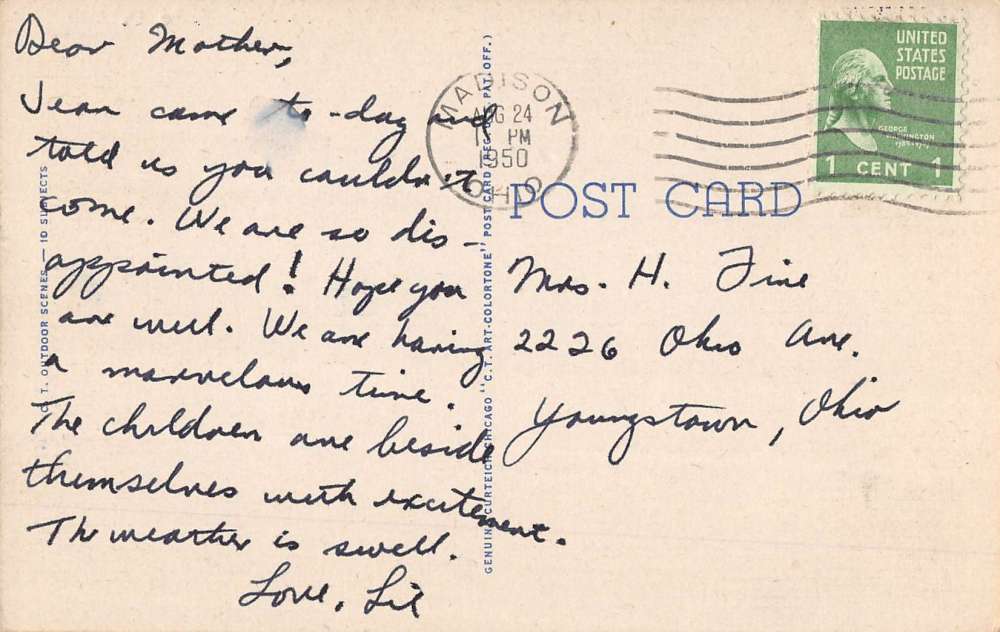 Dear Mother,
Jean came to-day and
told us you couldn't
come. We are so dis-
appointed! Hope you
are well. We are having
a marvelous time.
The children are beside
themselves with excitement.
The weather is swell.
Love, Lil
C. T. OUTDOOR SCENES — 10 SUBJECTS
GENUINE CURTEICH-CHICAGO "C.T. ART-COLORTONE" POST CARD (REG. U.S. PAT. OFF.)
MADISON
AUG 24
PM
1950
OHIO
UNITED
STATES
POSTAGE
GEORGE
WASHINGTON
1 CENT 1
POST CARD
Mrs. H. Fine
2226 Ohio Ave.
Youngstown, Ohio